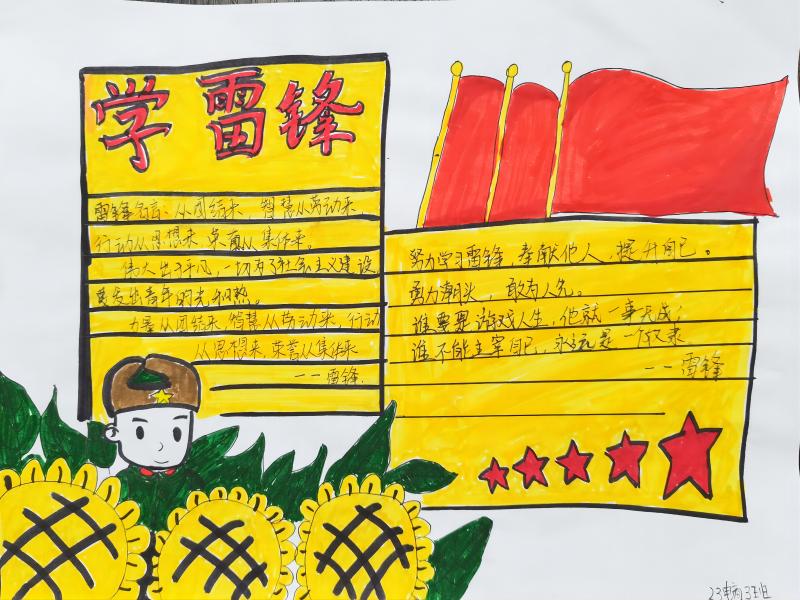 学雷锋
雷锋名言：从团结来，智慧从劳动来，
行动从思想来，荣誉从集体来。
伟大出于平凡，一切为了社会主义建设，
要发出青年的光和热。
力量从团结来，智慧从劳动来，行动
从思想来，荣誉从集体来
——雷锋
努力学习雷锋，奉献他人，提升自己。
勇力潮头，敢为人先。
谁要要游戏人生，他就一事无成；
谁不能主宰自己，永远是一个奴隶
——雷锋
23 3班